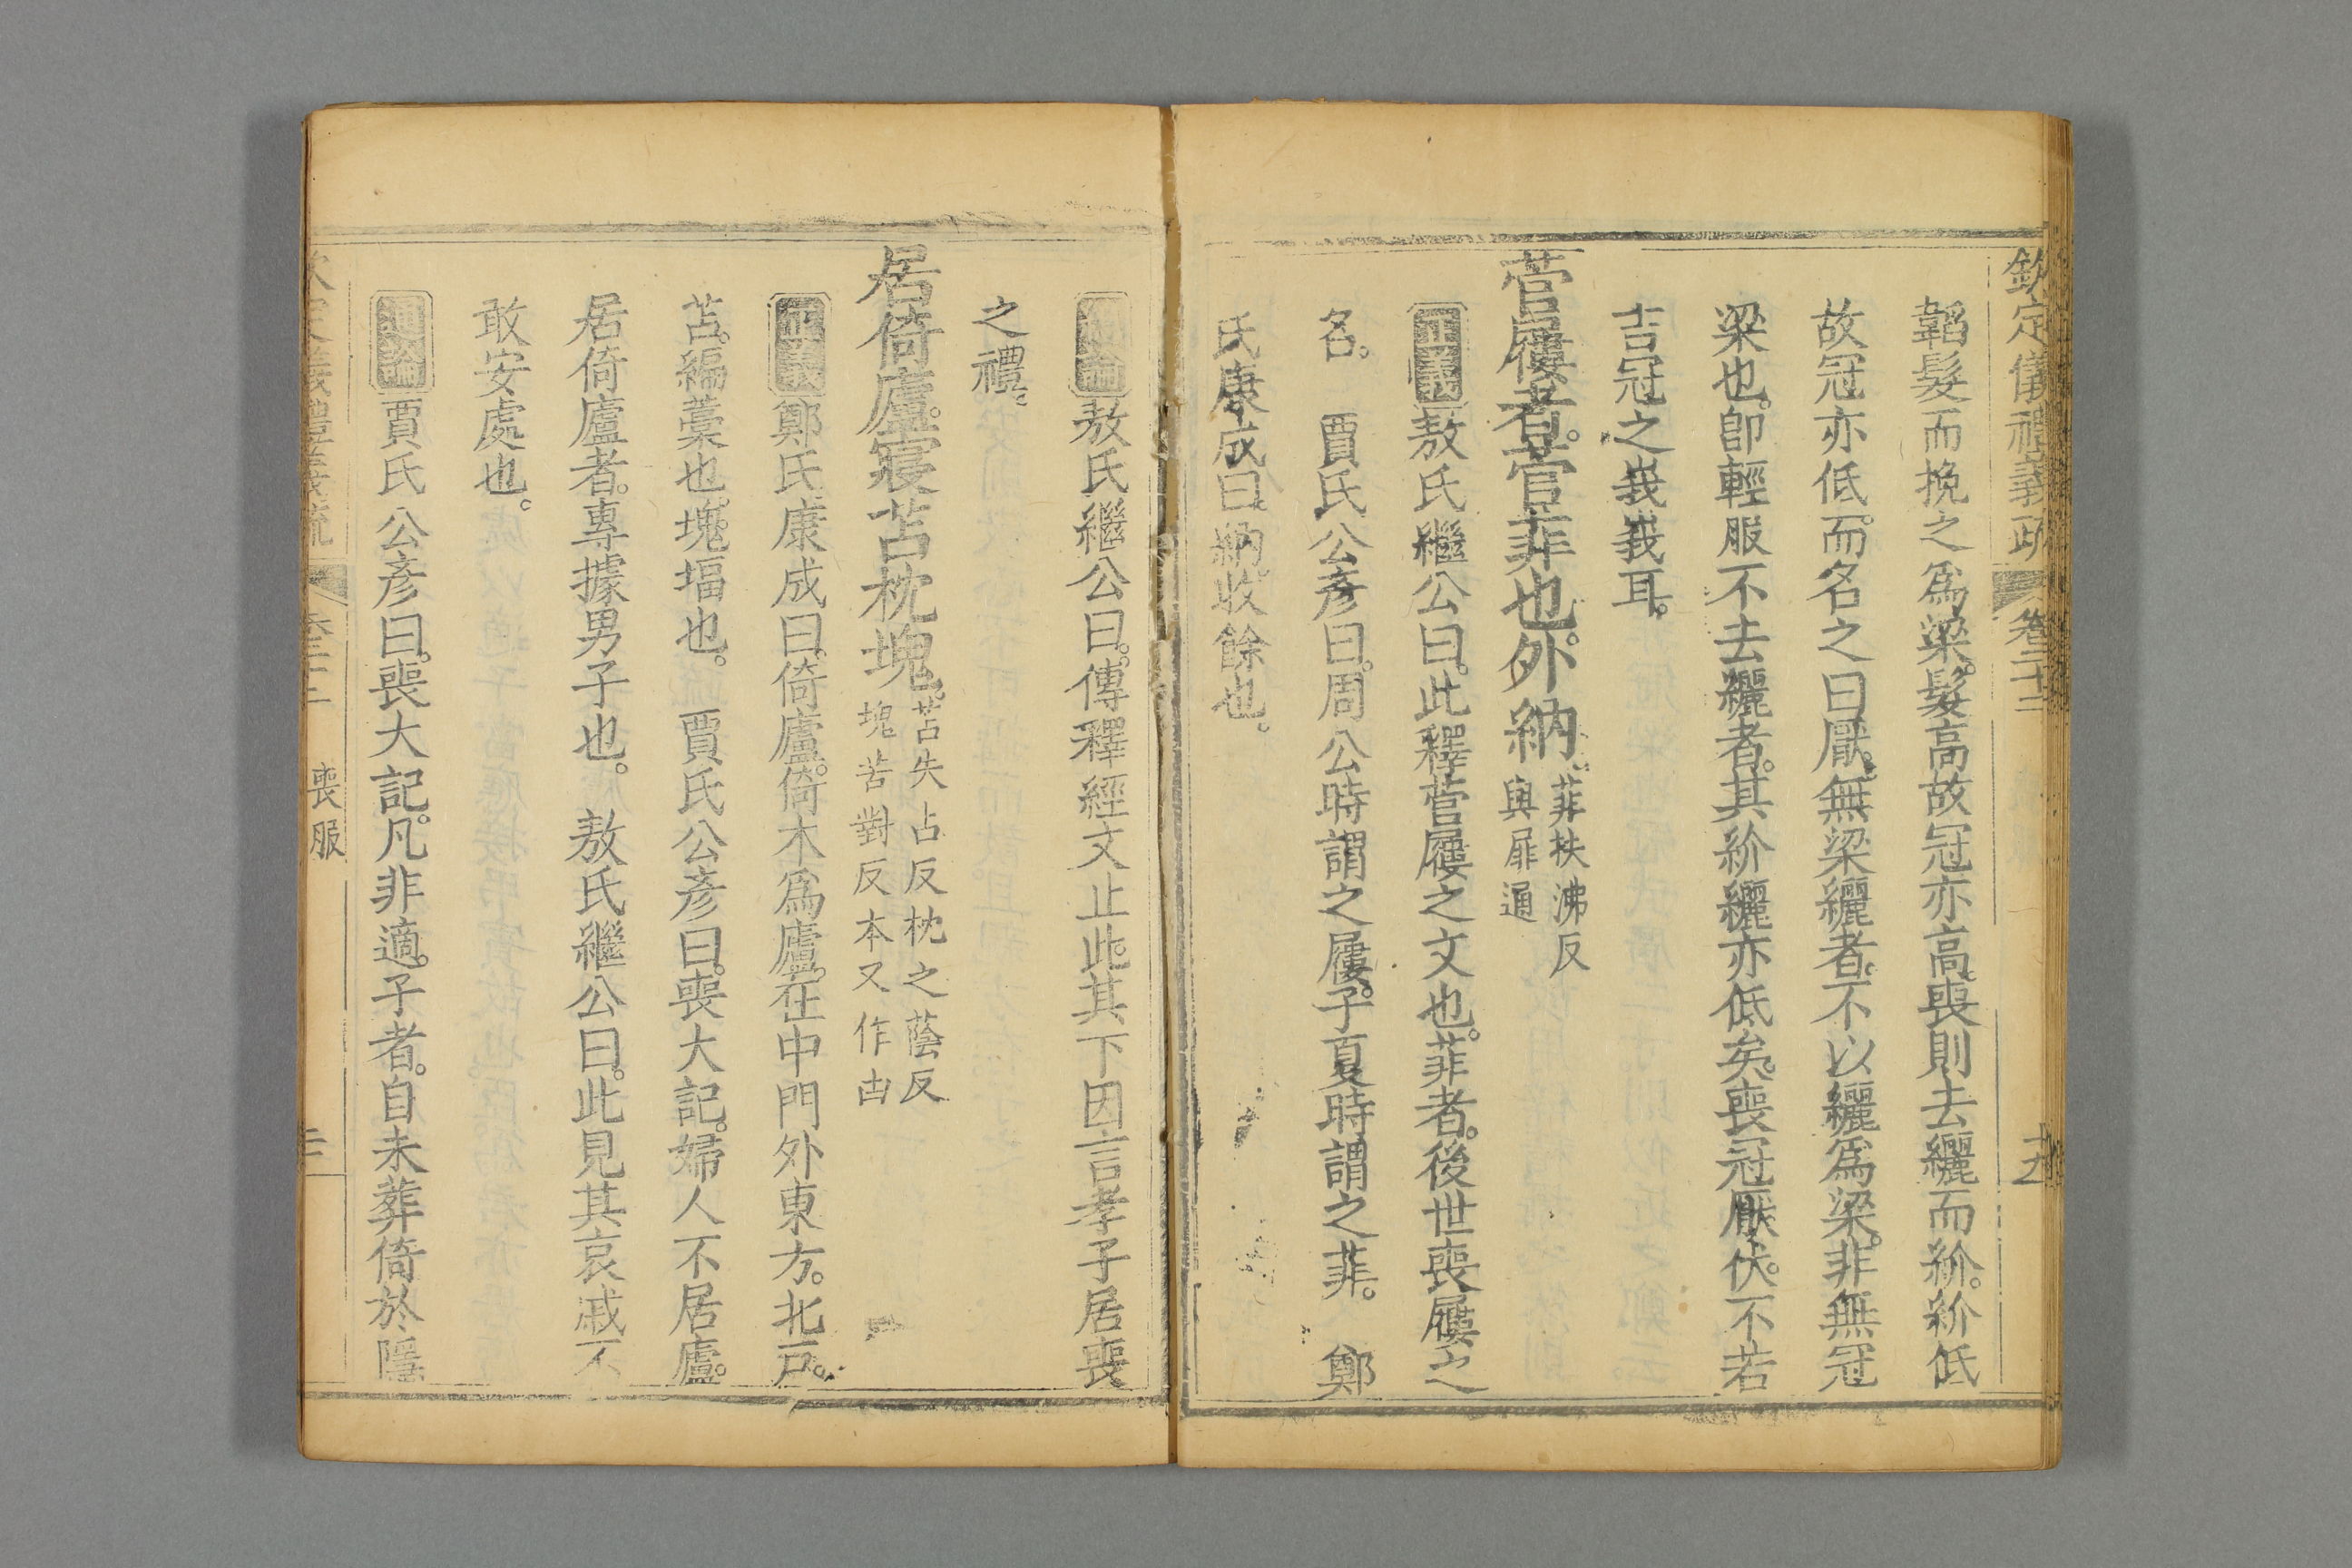 欽定儀禮義疏 卷二十二 十九
韜髮而挽之爲梁。髮高故冠亦高。喪則去纚而紒。紒低
故冠亦低。而名之曰厭。無梁纚者。不以纚爲梁。非無冠
梁也。卽輕服不去纚者。其紒纚亦低矣。喪冠厭伏。不若
吉冠之峩峩耳。
菅屨者。菅菲也。外納。
菲扶沸反
與扉通
正義敖氏繼公曰。此釋菅屨之文也。菲者。後世喪屨之
名。 賈氏公彥曰。周公時謂之屨。子夏時謂之菲。 鄭
氏康成曰。納。收餘也。
敖氏繼公曰。傳釋經文止此。其下因言孝子居喪
之禮。
居倚廬。寢苫枕塊。
苫失占反枕之蔭反
塊苦對反本又作凷
正義鄭氏康成曰。倚廬。倚木爲廬。在中門外東方。北戸。
苫。編藁也。塊。堛也。 賈氏公彥曰。喪大記。婦人不居廬。
居倚廬者。專據男子也。 敖氏繼公曰。此見其哀戚不
敢安處也。
通論賈氏公彥曰。喪大記。凡非適子者。自未葬倚於隱
喪服